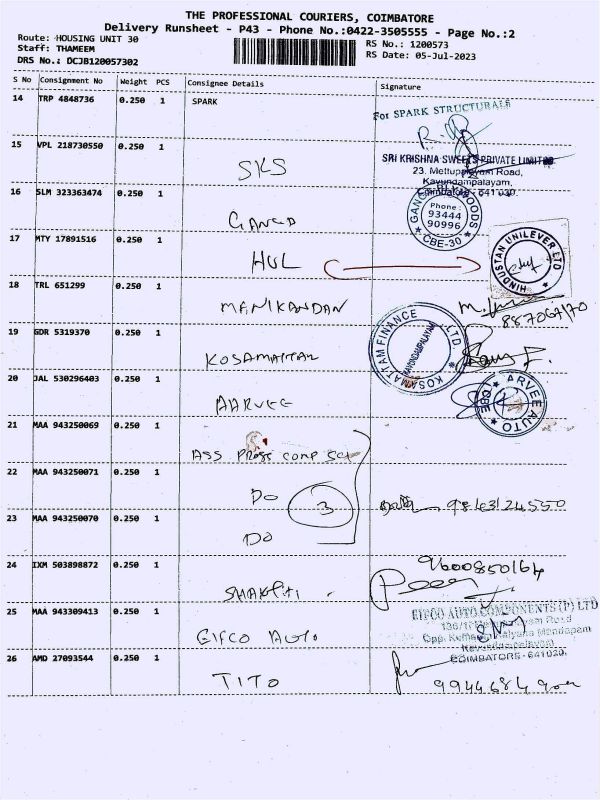 THE PROFESSIONAL COURIERS, COIMBATORE
Delivery Runsheet - P43 - Phone No.:0422-3505555 - Page No.:2
Route: HOUSING UNIT 30
RS No.: 1200573
Staff: THAMEEM
RS Date: 05-Jul-2023
DRS No.: DCJB120057302
S No Consignment No Weight PCS Consignee Details Signature
14 TRP 4848736 0.250 1 SPARK
For SPARK STRUCTURALS
15 VPL 218730550 0.250 1
SKS
SRI KRISHNA SWEETS PRIVATE LIMITED
23, Mettupalayam Road,
Kavundampalayam,
Coimbatore - 641 030.
16 SLM 323363474 0.250 1
GANGA
Phone :
93444
90996
CBE-30
17 MTY 17891516 0.250 1
HUL
HINDUSTAN UNILEVER LTD
18 TRL 651299 0.250 1
MANIKANDAN
19 GDR 5319370 0.250 1
KOSAMATTAM
KOSAMATTAM FINANCE LTD.
KAVUNDAMPALAYAM
20 JAL 530296403 0.250 1
AARVEE
ARVEE AUTO
CBE
21 MAA 943250069 0.250 1
ASS PROSS COMP SCI
22 MAA 943250071 0.250 1
DO
3
9843124550
23 MAA 943250070 0.250 1
DO
24 IXM 503898872 0.250 1
SHAKTHI
9600850164
25 MAA 943309413 0.250 1
EIFCO AUTO
EIFCO AUTO COMPONENTS (P) LTD
Kalyana Mandapam
Kavundampalayam,
COIMBATORE - 641030.
26 AMD 27093544 0.250 1
TITO